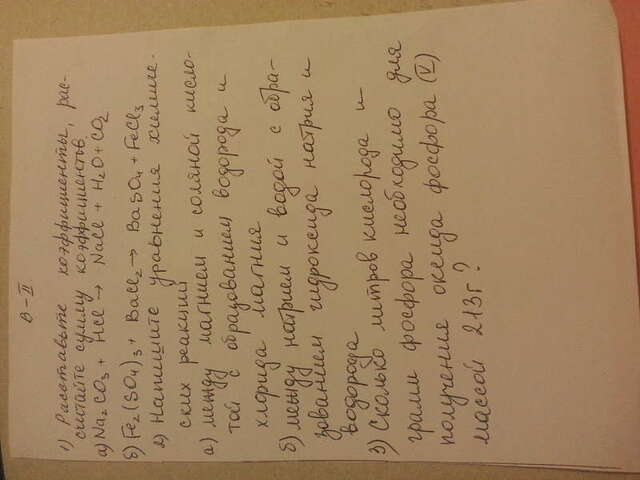 В-II
1) Расставьте коэффициенты, рас-
считайте сумму коэффициентов
а) Na2CO3 + HCl → NaCl + H2O + CO2
б) Fe2(SO4)3 + BaCl2 → BaSO4 + FeCl3
2) Напишите уравнения химиче-
ских реакций
а) между магнием и соляной кисло-
той с образованием водорода и
хлорида магния
б) между натрием и водой с обра-
зованием гидроксида натрия и
водорода
3) Сколько литров кислорода и
грамм фосфора необходимо для
получения оксида фосфора (V)
массой 213г?